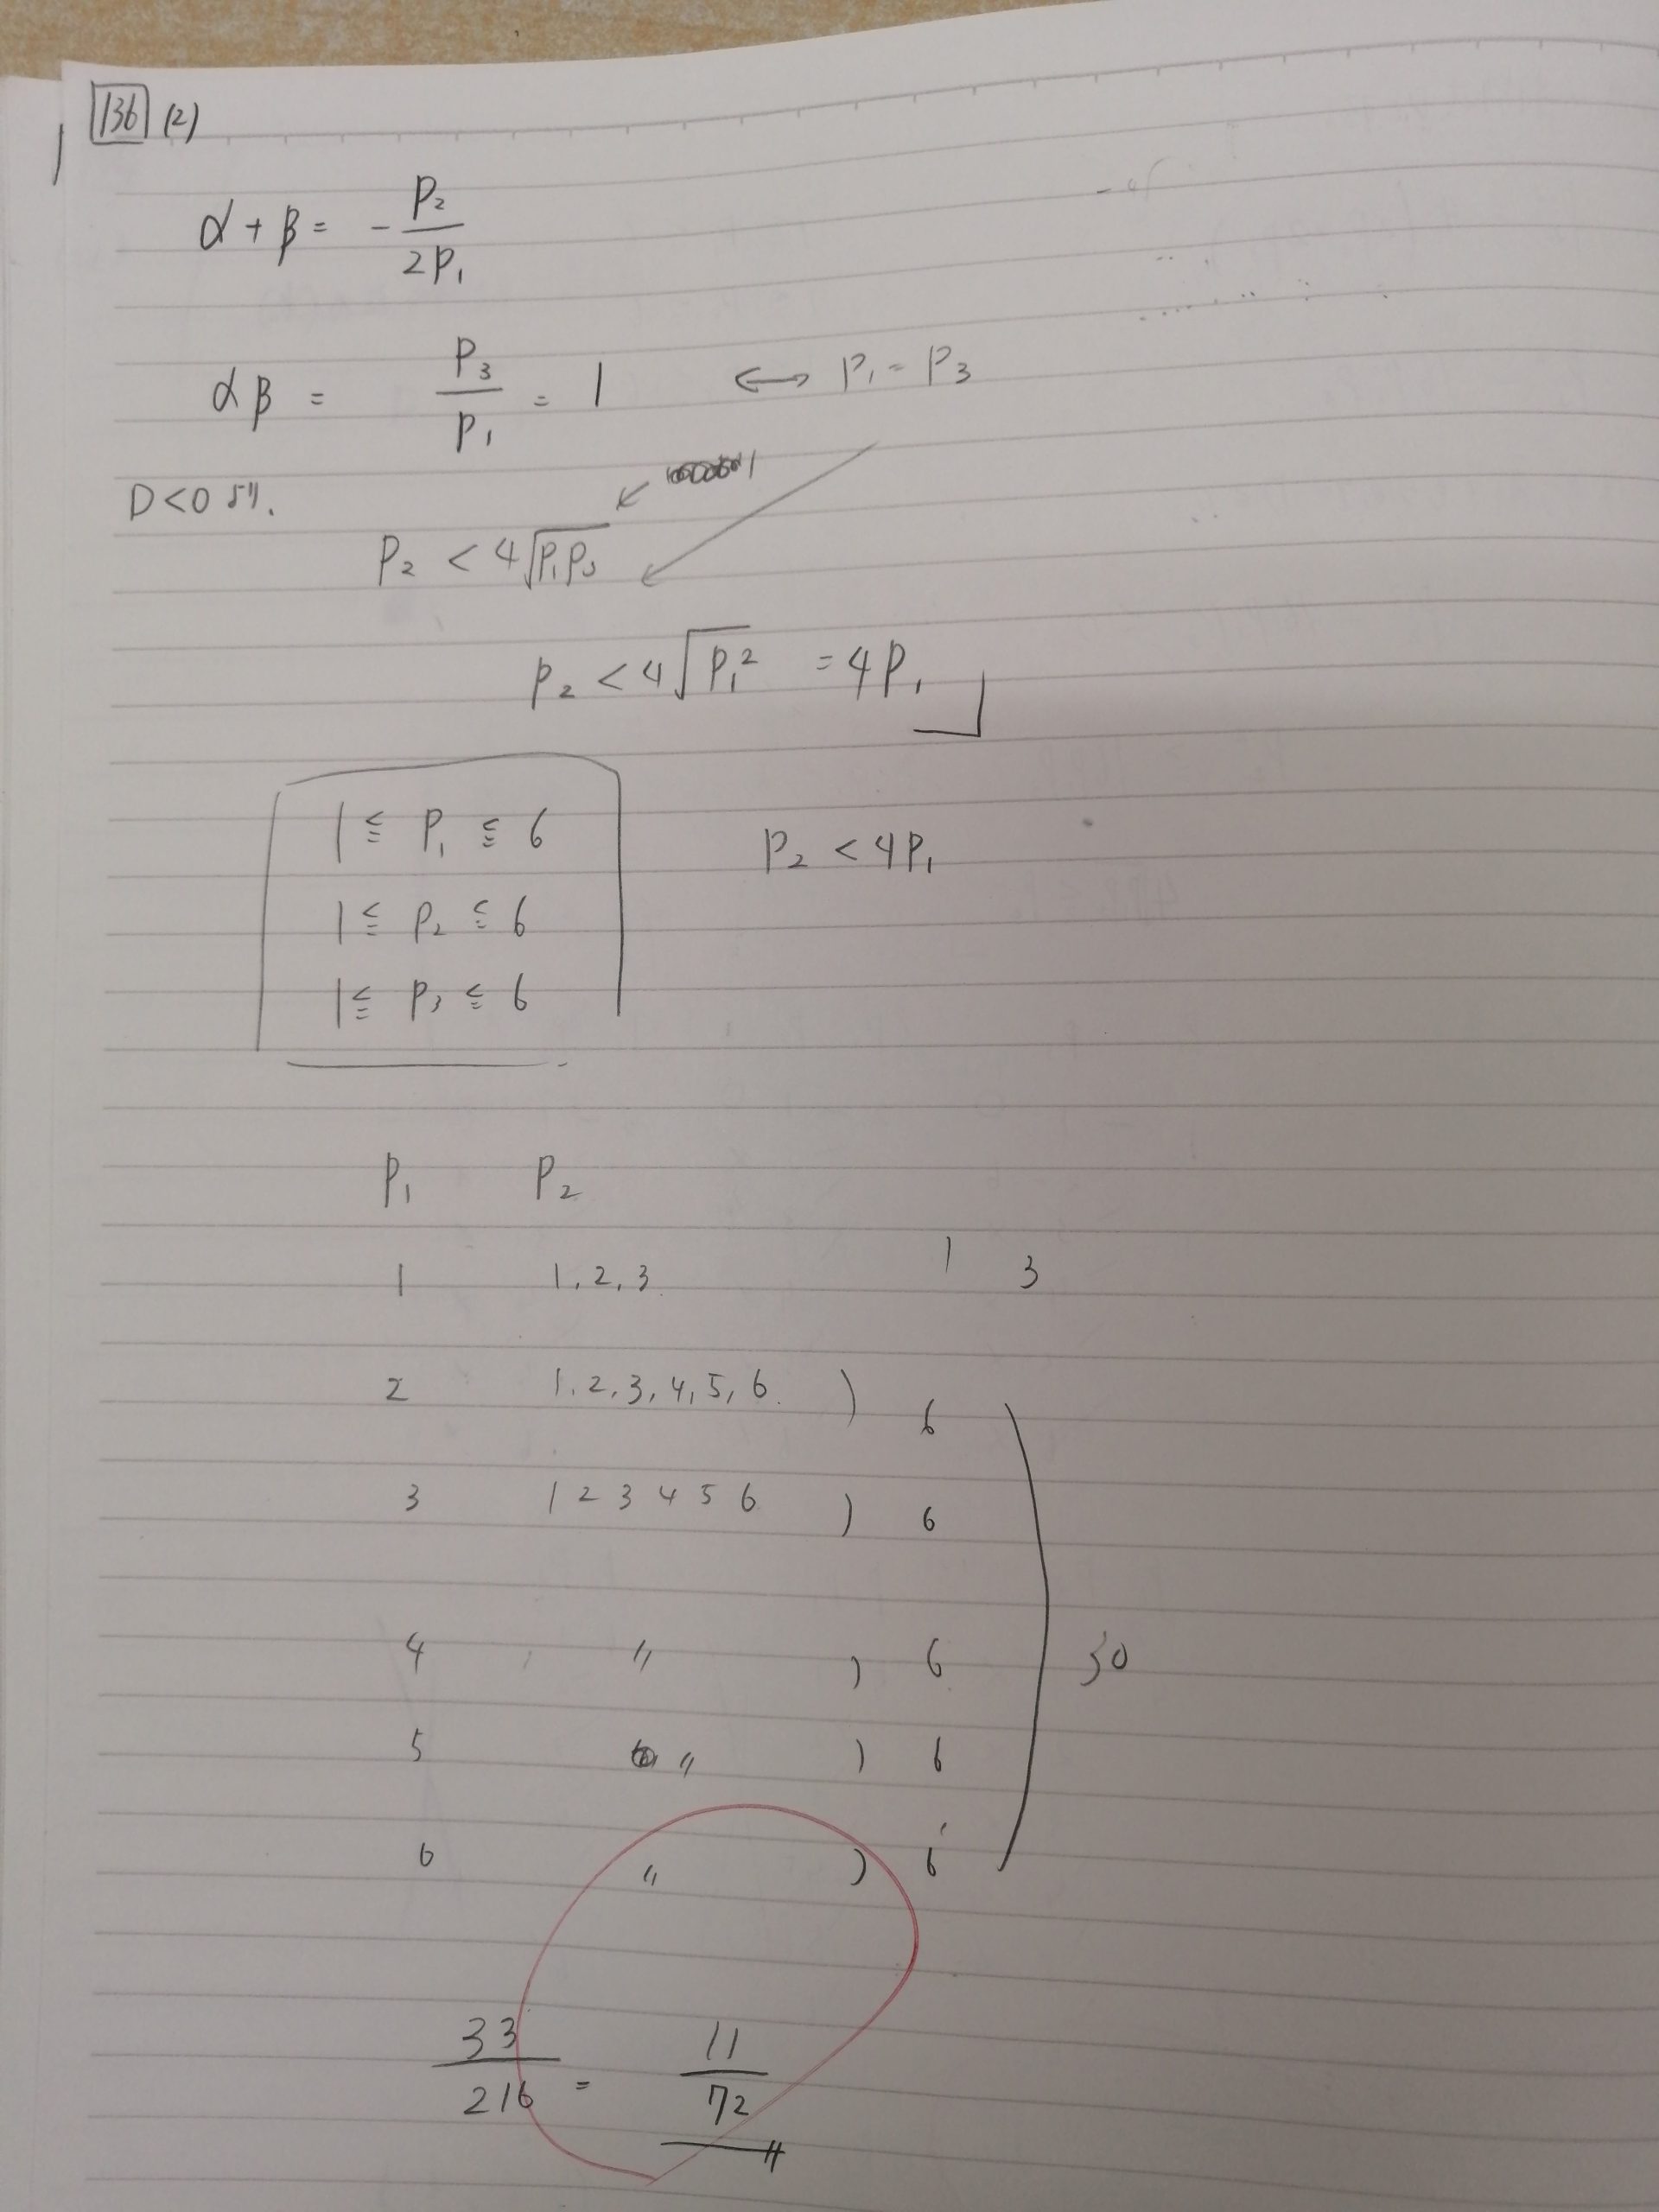 136 (2)
α + β = - P₂ / 2P₁
αβ = P₃ / P₁ = 1 ⟷ P₁ = P₃
D < 0 より.
P₂ < 4√P₁P₃
P₂ < 4√P₁² = 4P₁
1 ≦ P₁ ≦ 6
P₂ < 4P₁
1 ≦ P₂ ≦ 6
1 ≦ P₃ ≦ 6
P₁ P₂
1 1, 2, 3 ) 3
2 1, 2, 3, 4, 5, 6 ) 6
3 1 2 3 4 5 6 ) 6
4 〃 ) 6 30
5 〃 ) 6
6 〃 ) 6
33 / 216 = 11 / 72